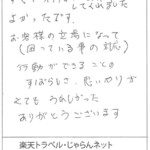 してくれました
よかったです。
お客様の立場になって
(困っている事の対応)
行動ができることの
すばらしさ、思いやりが
とても うれしかった
ありがとうございます
楽天トラベル・じゃらんネット